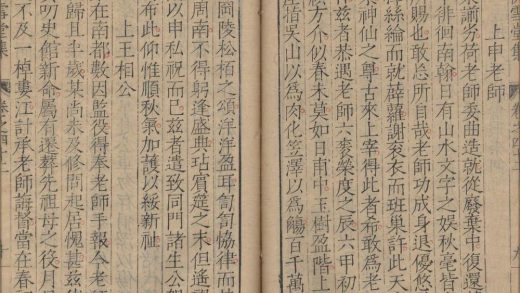 上申老師
劣荷老師委曲造就從廢棄中復還
徘徊南翰日有山水文字之娛秋毫皆
賜也敢忘所自哉老師功成身退優悠
絲綸而就薜蘿謝袞衣而班巢許此天
神仙之粤古來上宰得此者希敢為老
兹者恭遇老師六袠榮度之辰六甲初
方介似春未莫如日南中玉樹盈階上
吳山以為肉化笠澤以為觴百千萬
岡陵松栢之頌洋洋盈耳訇訇協律而
周南不得躬逢盛典玷賓筵之末但遙
以申私祝而已兹者遣致同門諸生公
布此仰惟順秋氣加護以綏新祉
上王相公
在南都數因監役得奉老師手報今老
歸且半歲某尚未及修問起居愧甚兹
叨史館新命屬有遷塟先祖母之役月
不及一棹婁江計承老師誨督當在春
堂集
卷之四十二